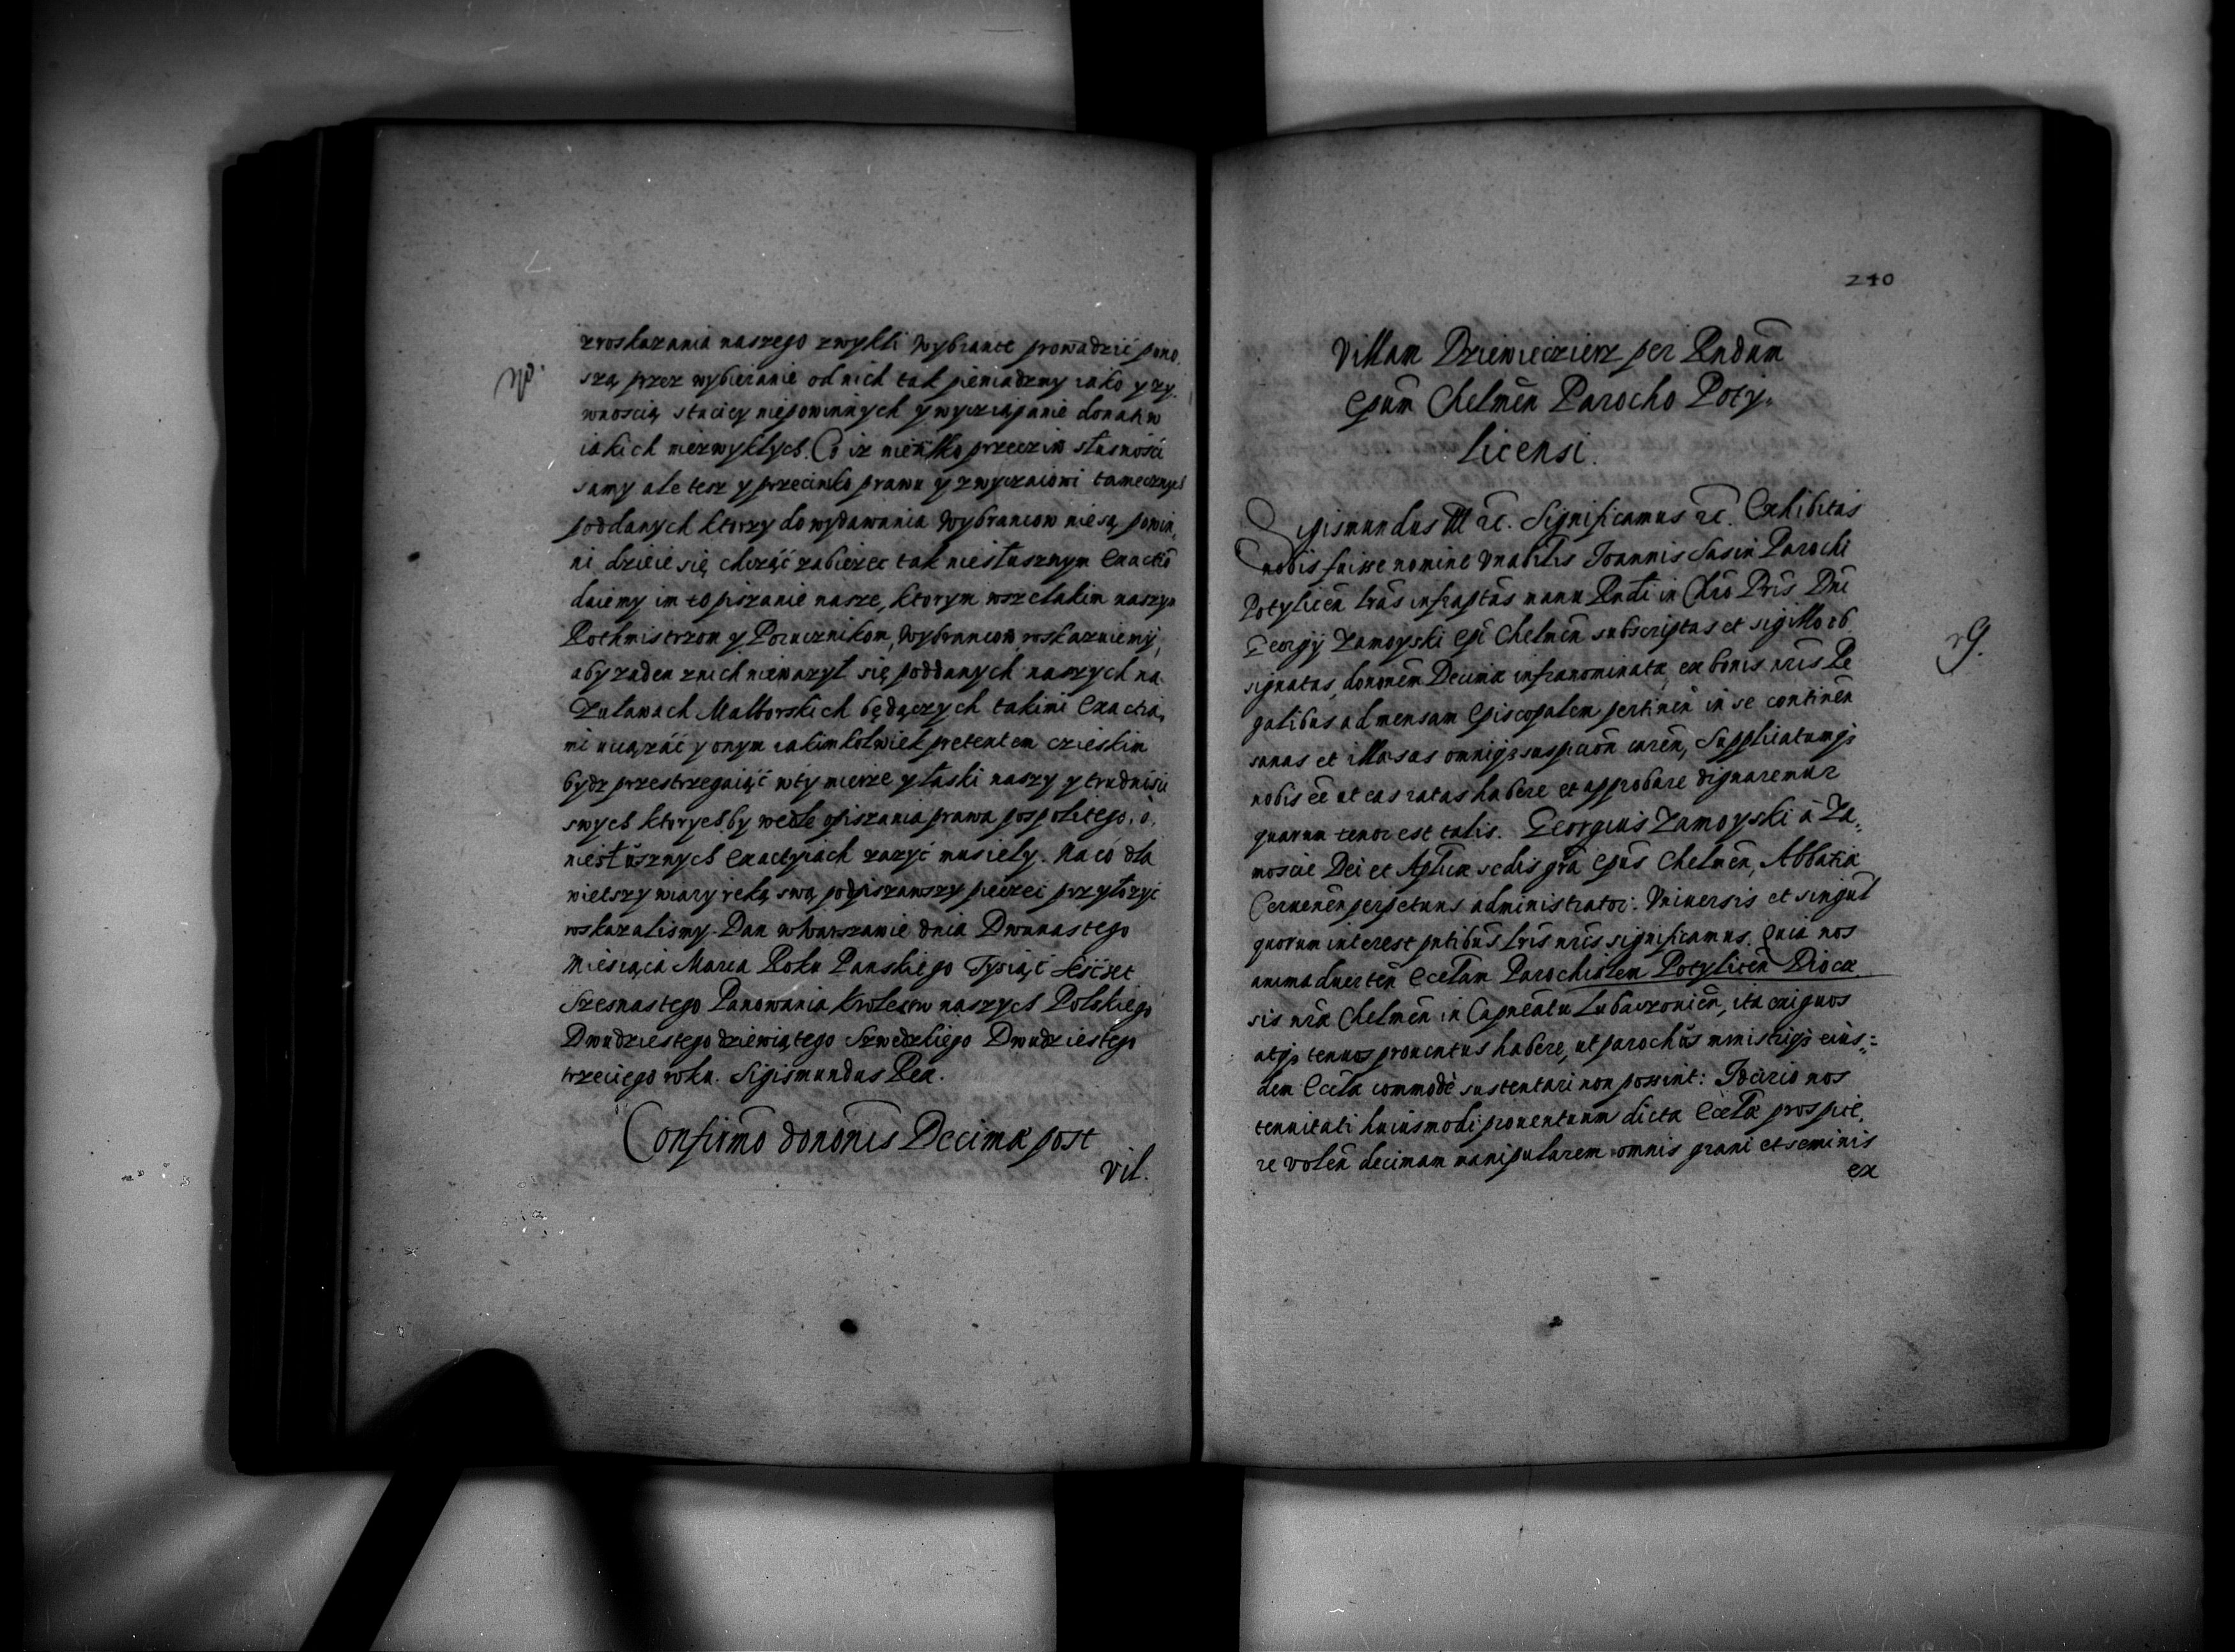 zroskazania naszego zwykli Wybrańce prowadzić pono.
szą przez wybieranie od nich tak pieniądzmy iako y zy.
wnoscią stacicy niepowinnych y wyciąganie donatiw
iakich niezwykłych. Co iz nie tylko przeciw słusności
samy ale tesz y przeciwko prawu y zwyczaiowi tamecznych
poddanych ktorzy do wydawania Wybrancow nie są powin„
ni dzieie się chcząć zabiezec tak niesłusznym Exactiō
daiemy im to pisanie nasze, ktorym wszelakim naszym
Rothmistrzom y Porucznikom, Wybrancow roskazuiemy,
aby zaden z nich niewazył się poddanych naszych na
Zuławach Malborskich będączych takimi Exactia„
mi uciązáć y onym iakimkolwiek pretextem cziezkim
bydz przestrzegaiąć w ty mierze y łaski naszy y trudnisci
swych ktorych by wedle opisania prawa pospolitego, o
niesłusznych Exactyiach zazyć musiely. Na co dla
wietszy wiary ręką swą podpisawszy pieczęć przyłozyć
roskazalismy. Dan w Warszawie dnia Dwunastego
Miesiąca Marca Roku Panskiego Tysiąć Sesćset
Szesnastego Panowania Krolestw naszych Polskiego
Dwudziestego dziewiątego Szwedzkiego Dwudziestego
trzeciego roku. Sigismundus Rex.
Confirmō donōnis Decimæ post
vil.
240
Villam Dziewieczierz per Rndūm
Epūm Chelmēn Parocho Poty„
licensi.
Sigismundus III etc. Significamus etc. Exhibitas
nobis fuisse nomine Vnābilis Joannis Sasin Parochi
Potyliceñ lrās infraptās manu Rndi in Chrō Pris Dni
Georgij Zamoyski Epi Chelmēn subscriptas et sigillo ob
signatas, donōnem Decimæ infranominatæ, ex bonis nrīs Re
galibus ad mensam Episcopalem pertineñ in se contineñ
sanas et illæsas omniq; suspicioñ careñ, Supplicatumq;
nobis eē ut eas ratas habere et approbare dignaremur
quarum tenor est talis. Georgius Zamoyski à Za„
moscie Dei et Aplicæ sedis grā Epūs Chelmēn, Abbatiæ
Cervenēn perpetuus administrator: Vniversis et singul
quorum interest pntibūs lrīs nrīs significamus. Quia nos
animadverteñ Ecclām Parochialem Potyliceñ Diocæ
sis nræ Chelmēn in Capneātu Lubaczovieñ, ita exiguos
atq; tenuos proventus habere, ut parochūs ministriq; eius„
dem Ecclæ commodè sustentari non possint: Idcirco nos
tenuitati huiusmodi proventuum dictæ Ecclæ prospice„
re voleñ decimam manipularem omnis grani et seminis
ex